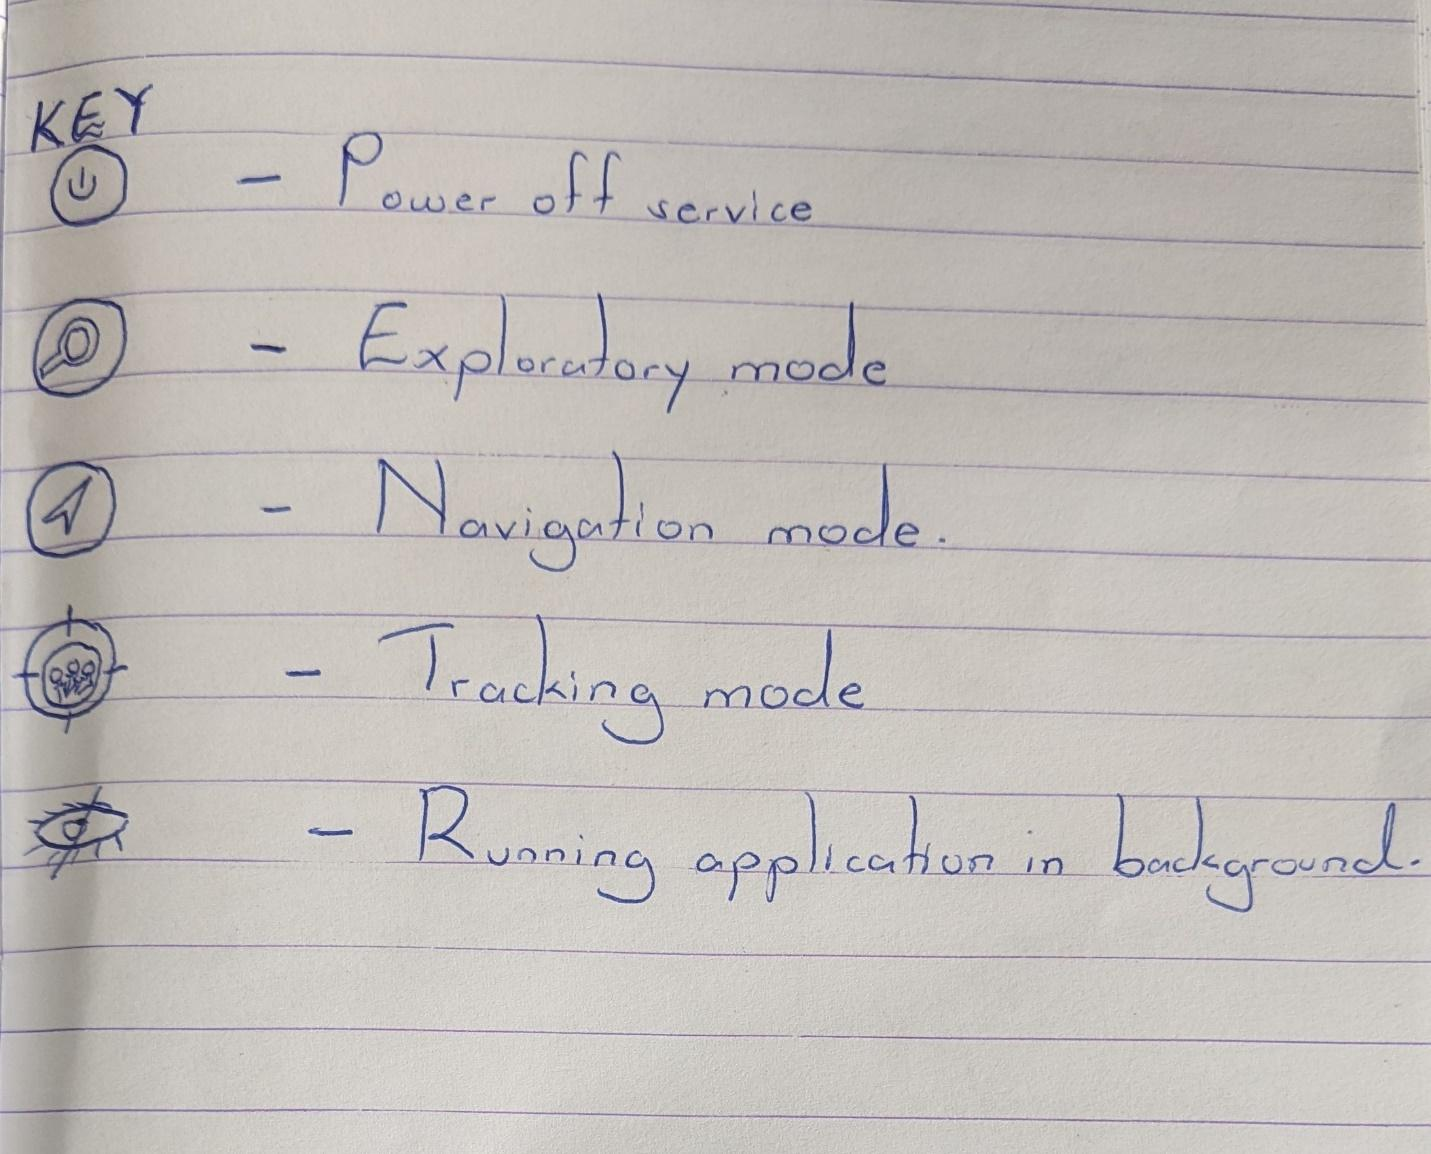 KEY
- Power off service
- Exploratory mode
- Navigation mode.
- Tracking mode
- Running application in background.